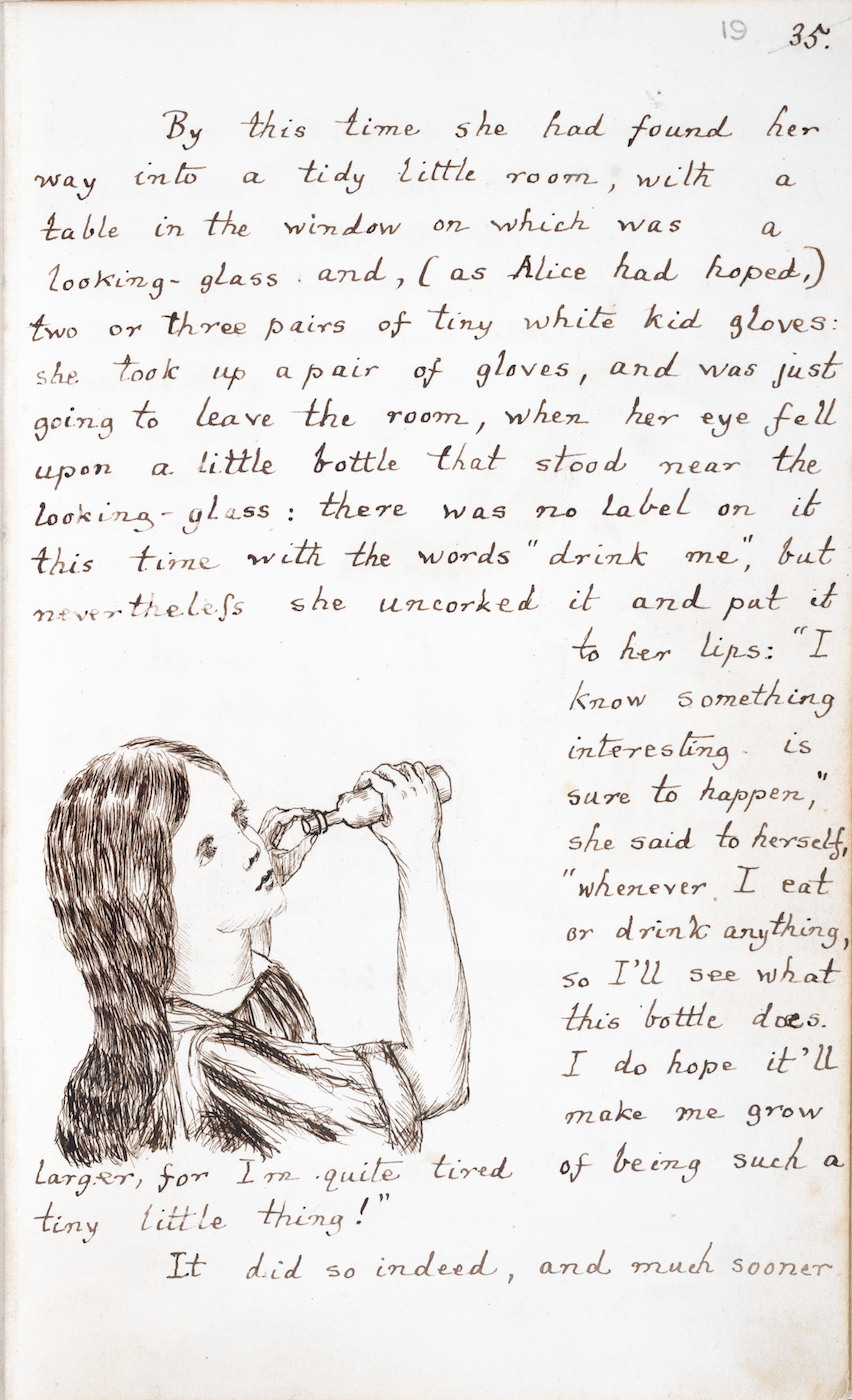 19 35.
By this time she had found her
way into a tidy little room, with a
table in the window on which was a
looking-glass and, (as Alice had hoped,)
two or three pairs of tiny white kid gloves:
she took up a pair of gloves, and was just
going to leave the room, when her eye fell
upon a little bottle that stood near the
looking-glass: there was no label on it
this time with the words "drink me", but
nevertheleſs she uncorked it and put it
to her lips: "I
know something
interesting is
sure to happen,"
she said to herself,
"whenever I eat
or drink anything,
so I'll see what
this bottle does.
I do hope it'll
make me grow
larger, for I'm quite tired of being such a
tiny little thing!"
It did so indeed, and much sooner